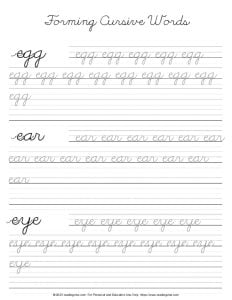 Forming Cursive Words
egg egg egg egg egg egg
egg egg egg egg egg egg egg egg
egg
ear ear ear ear ear ear
ear ear ear ear ear ear ear ear
ear
eye eye eye eye eye eye
eye eye eye eye eye eye eye eye
eye
For Personal and Educational Use Only